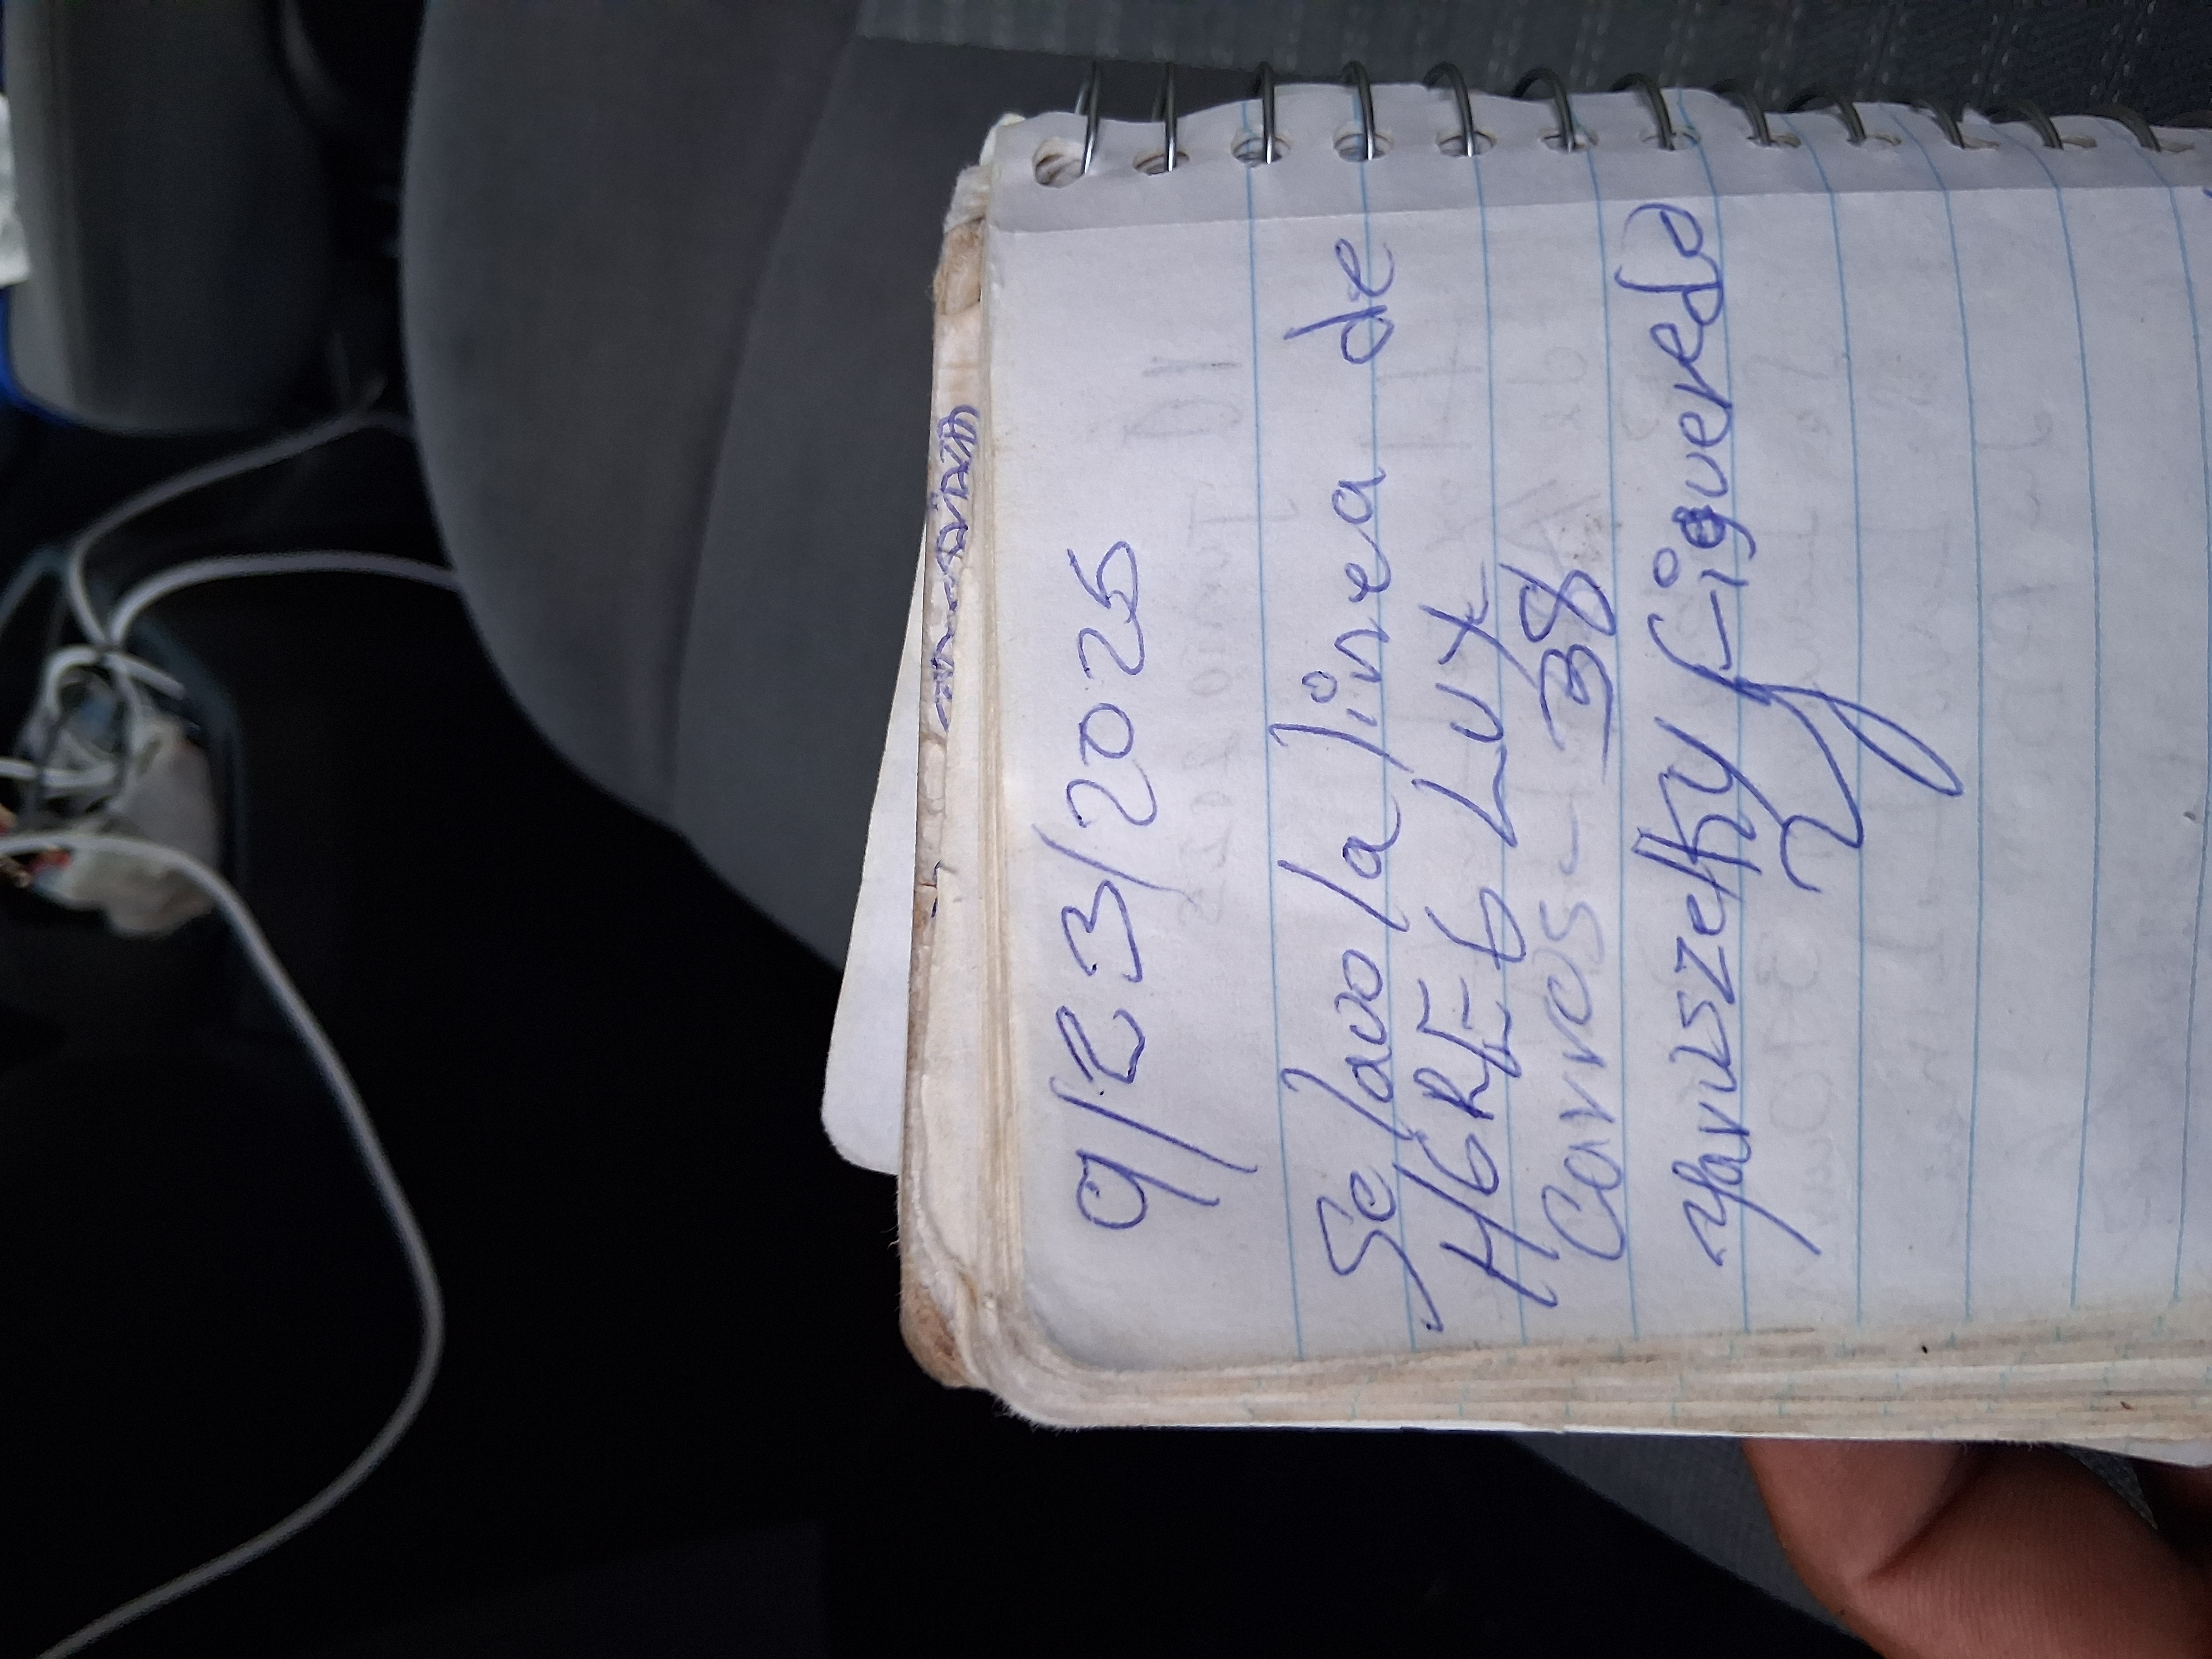 9/23/2025
Se lavo la linea de
HGREG LUX
Carros - 38
Yaruszelky Figueredo